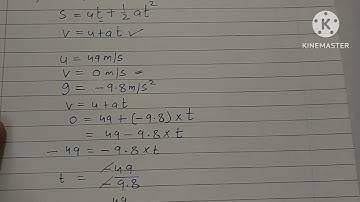 s = ut + 1/2 at²
v = u + at ✓
u = 49 m/s
v = 0 m/s
g = -9.8 m/s²
v = u + at
0 = 49 + (-9.8) × t
= 49 - 9.8 × t
- 49 = - 9.8 × t
t = -49/-9.8
49
KINEMASTER